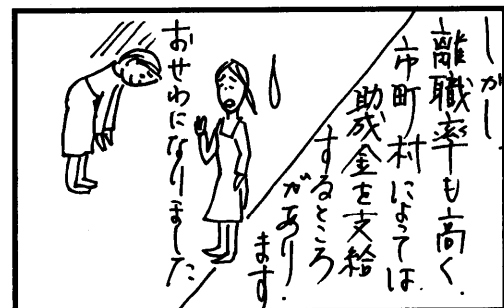 しかし、
離職率も高く、
市町村によっては、
助成金を支給
するところ
があり
ます。
おせわになりました